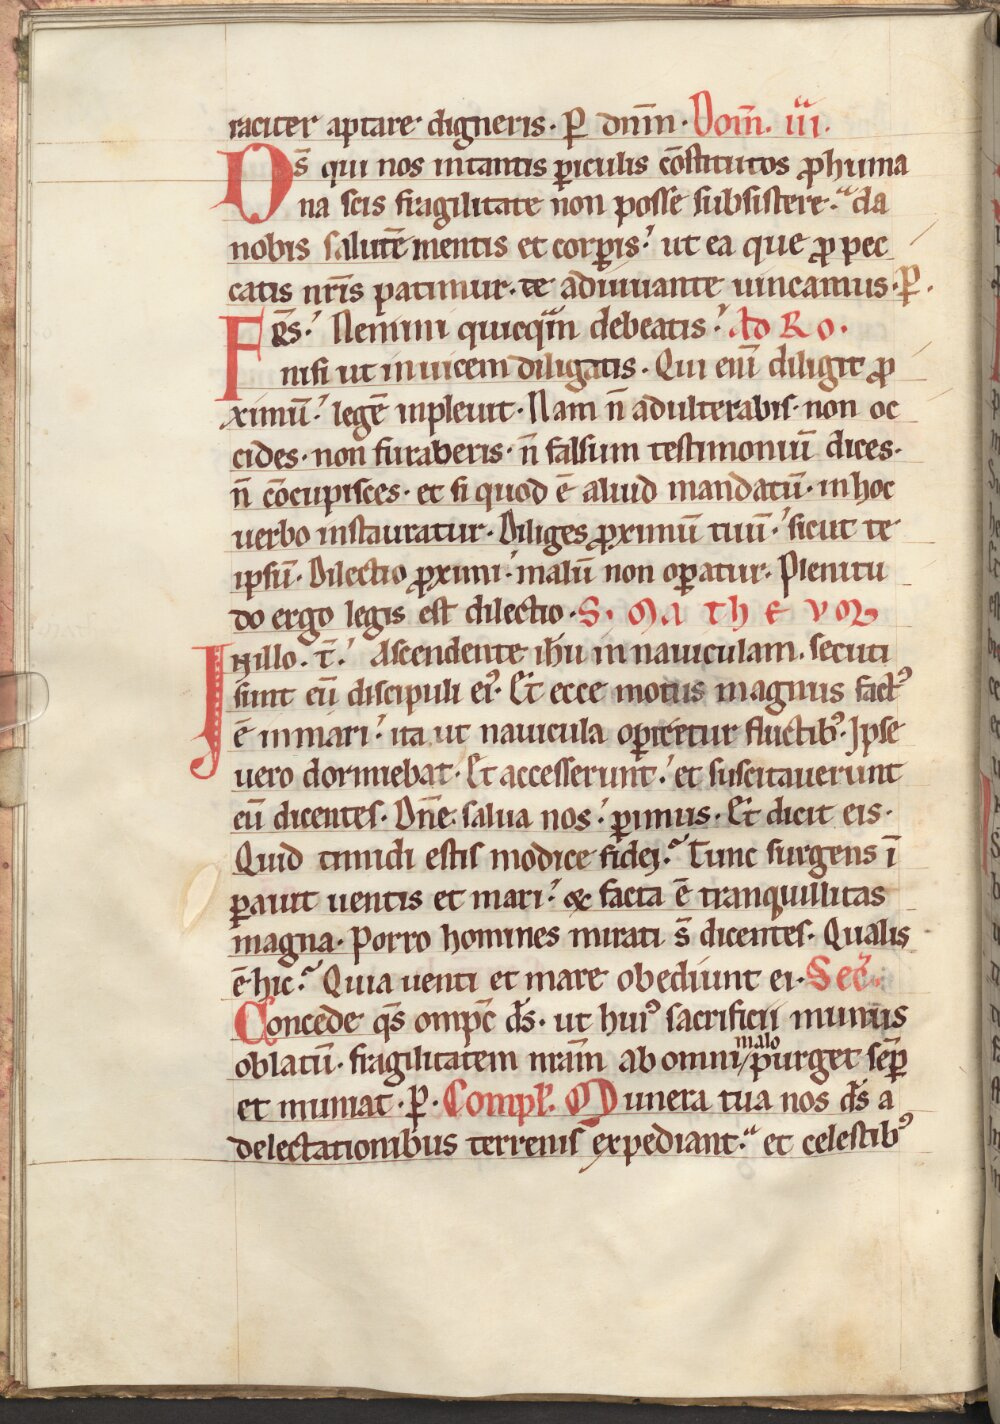 raciter aptare digneris· P̲ dn̄m· Dom̄. iii.
Ds̄ qui nos in tantis ꝑiculis cōstitutos ꝓ huma
na scis fragilitate non posse subsistere· da
nobis salutē mentis et corꝑis· ut ea que ꝓ pec
catis nr̄is patimur· te adiuuante uincamus· P̲.
Frs̄· Nemini quicqͣm debeatis· Ad Ro·
nisi ut inuicem diligatis· Qui eni̅ diligit ꝓ
ximū· legē inpleuit· Nam n̄ adulterabis· non oc
cides· non furaberis· n̄ falsum testimoniū dices·
n̄ cōcupisces· et si quod ē aliud mandatū· in hoc
uerbo instauratur· Diliges ꝓximū tuū· sicut te
ipsū· Dilectio ꝓximi· malū non oꝑatur· Plenitu
do ergo legis est dilectio· S. MATHEVM
In illo· t̄· Ascendente ih̄u in nauiculam· secuti
sunt eū discipuli eiꝰ· Et ecce motus magnus factꝰ
ē in mari· ita ut nauicula oꝑiretur fluctibꝰ· Ipse
uero dormiebat· Et accesserunt· et suscitauerunt
eū dicentes· Dn̄e salua nos· ꝑimus· Et dicit eis·
Quid timidi estis modice fidei· Tunc surgens ī
ꝑauit uentis et mari· & facta ē tranquillitas
magna· Porro homines mirati s̄ dicentes· Qualis
ē hic· Quia uenti et mare obediunt ei· Sec̄·
Concede qs̄ omp̄c ds̄· ut huiꝰ sacrificii munus
oblatū· fragilitatem nrām ab omni malo purget sēꝑ
et muniat· P̲· Compl̄. Munera tua nos ds̄ a
delectationibus terrenis expediant· et celestibꝰ